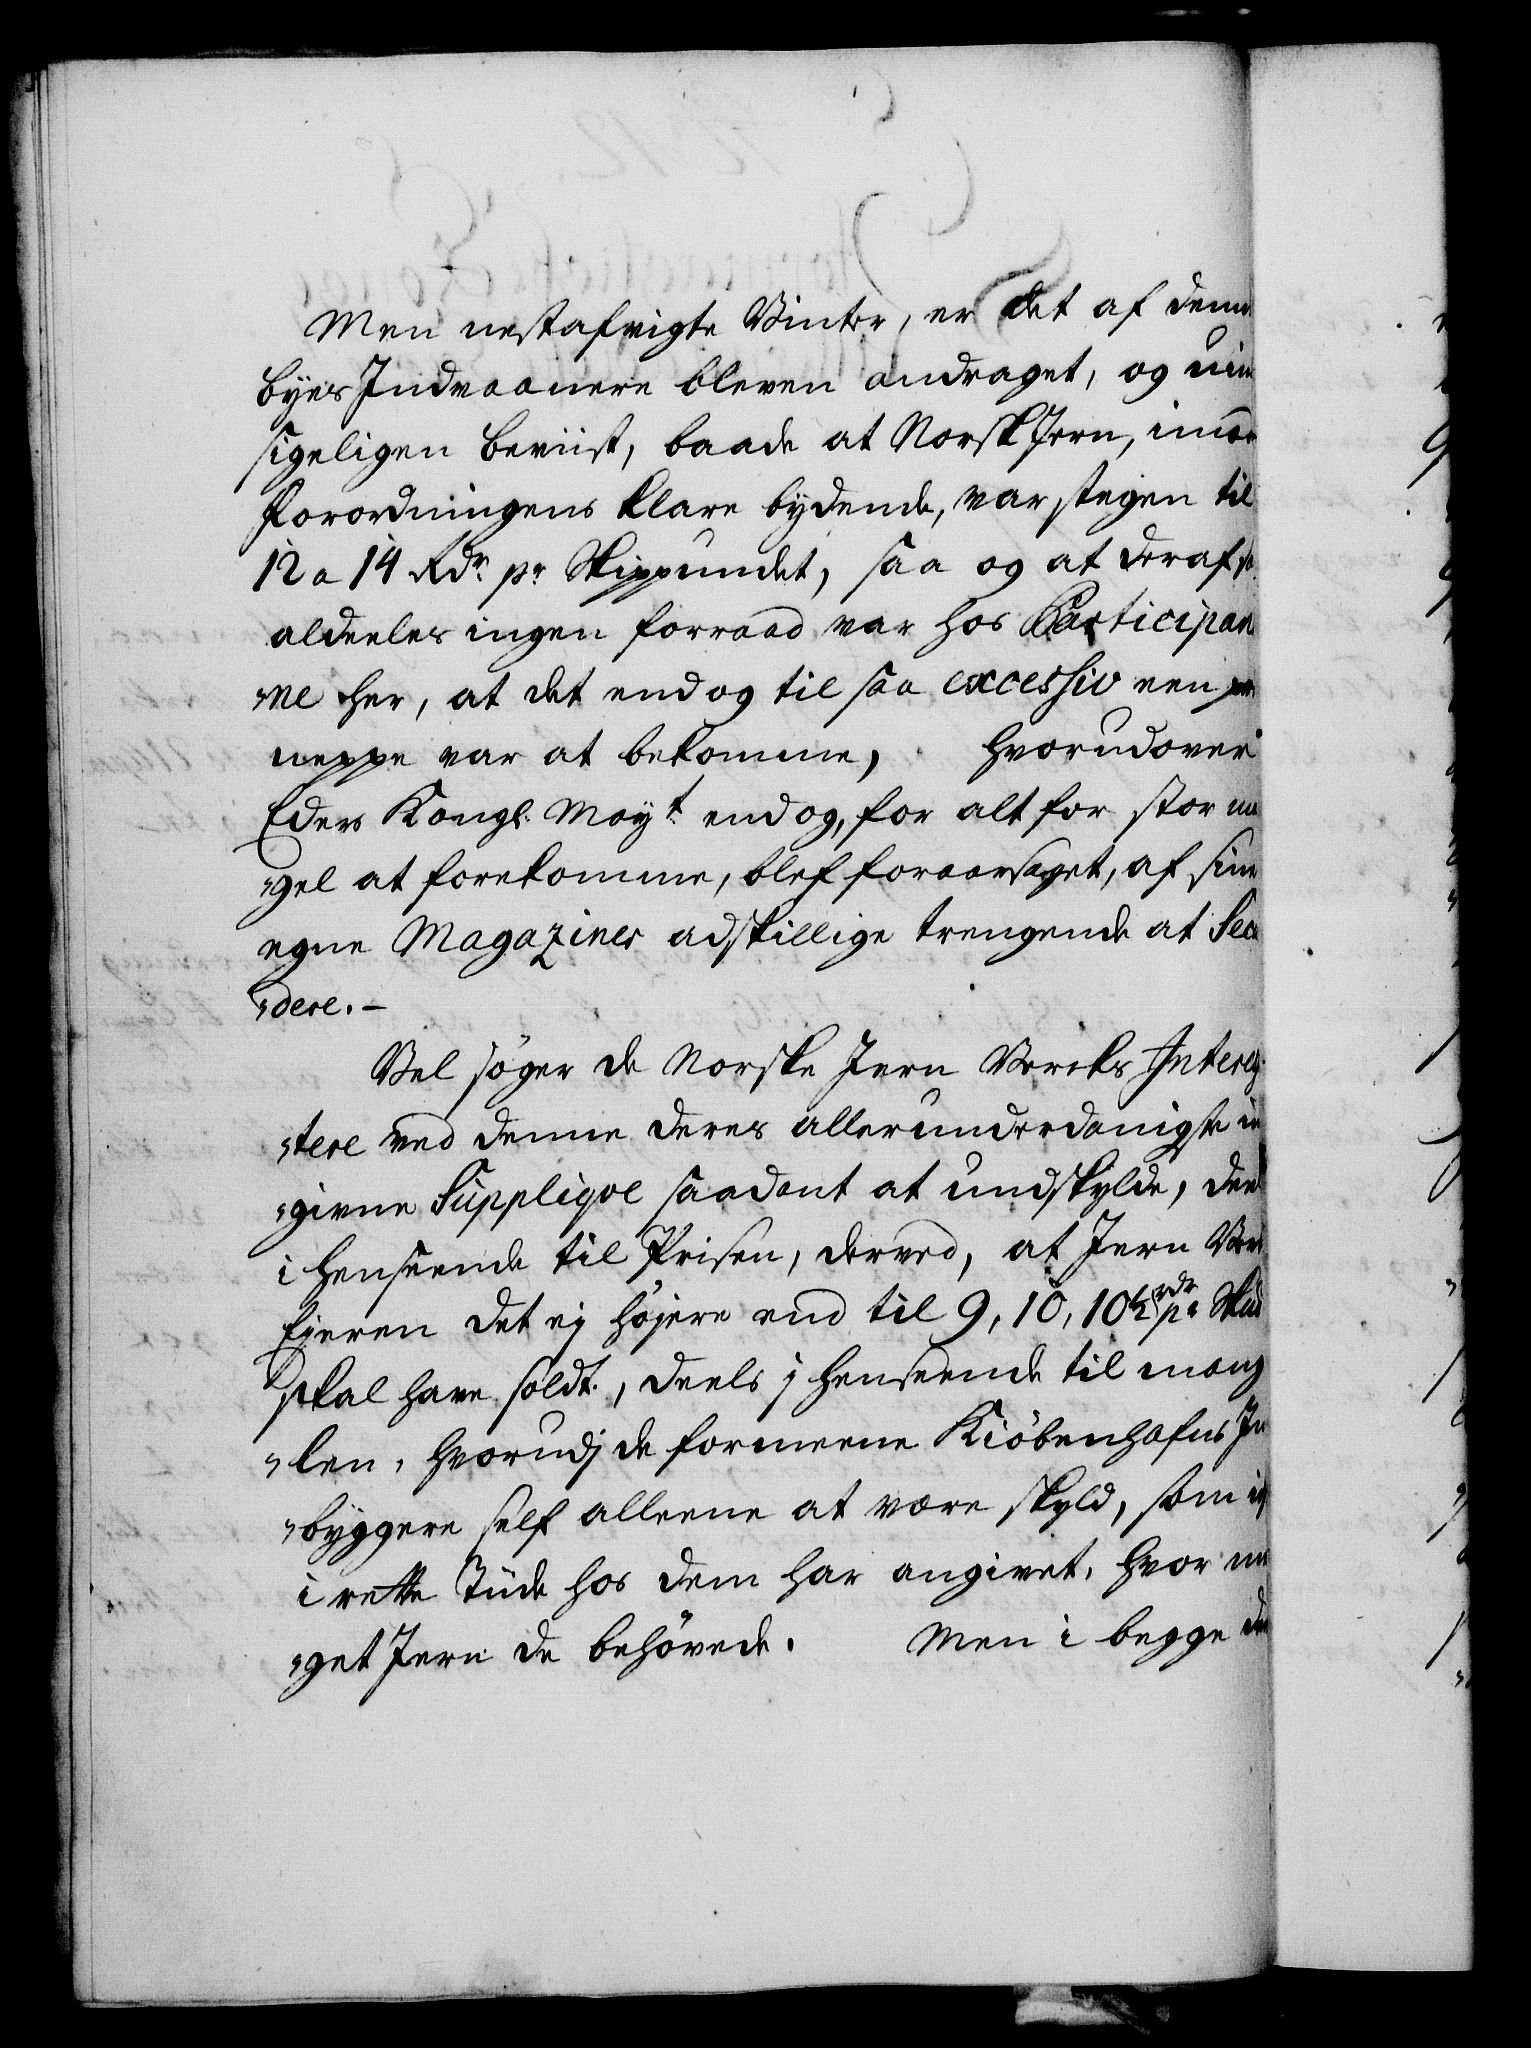 Men nestafvigte Vinter, er det af denne
byes Indvaanere bleven andraget, og uim
sigeligen beviist, baade at Norsk Jern, imod
Forordningens klare bydende, var stegen til
12 a 14 Rdr. pr. Skippundet, saa og at deraf
aldeeles ingen forraad var hos Participan
"ne her, at det endog til saa excessiv een
neppe var at bekomme, hvorudover
Eders Kongl: May:t endog, for alt for stor
"gel at forekomme, blef foraarsaget, af sine
egne Magaziner adskillige trengende at Sec
"dere. -
Vel søger de Norske Jern Vercks Interes
"tere ved denne deres allerunderdanigste in
"givne Suppliqve saadant at undskylde, deels
i henseende til Prisen, derved, at Jern Verks
Eieren det ej høyere end til 9, 10, 10½ rdr pr
skal have soldt, deels j henseende til mang
"len, hvorudj de formeene Kiöbenhafns In
"byggere self alleene at vore skyld, som ej
i rette Tüde hos dem har angivet, hvor me
"get Jern de behövede. Men i begge de